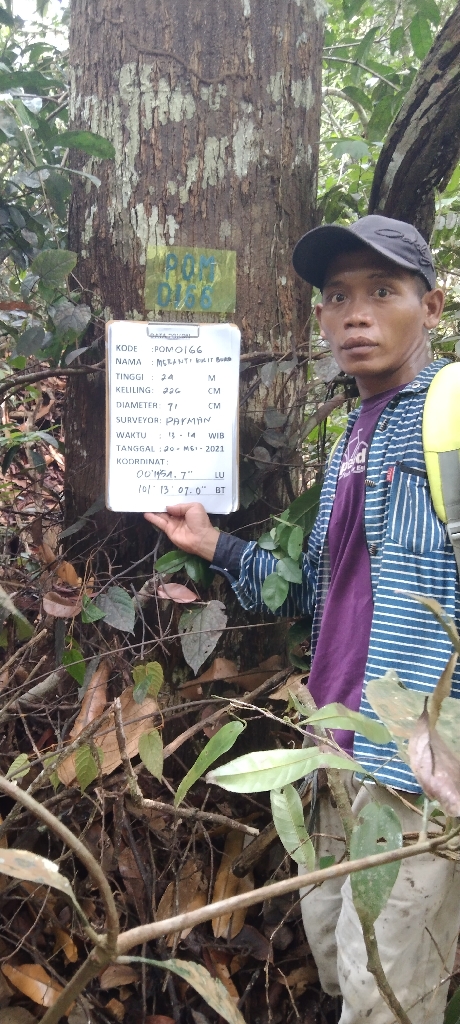 POM
0166
DATA POHON
KODE : POM0166
NAMA : MERANTI KULIT BUAYA
TINGGI : 24 M
KELILING: 226 CM
DIAMETER: 71 CM
SURVEYOR: PAYMAN
WAKTU : 13 - 14 WIB
TANGGAL : 20 - MEI - 2021
KOORDINAT:
LU
101° 13' 07.0" BT